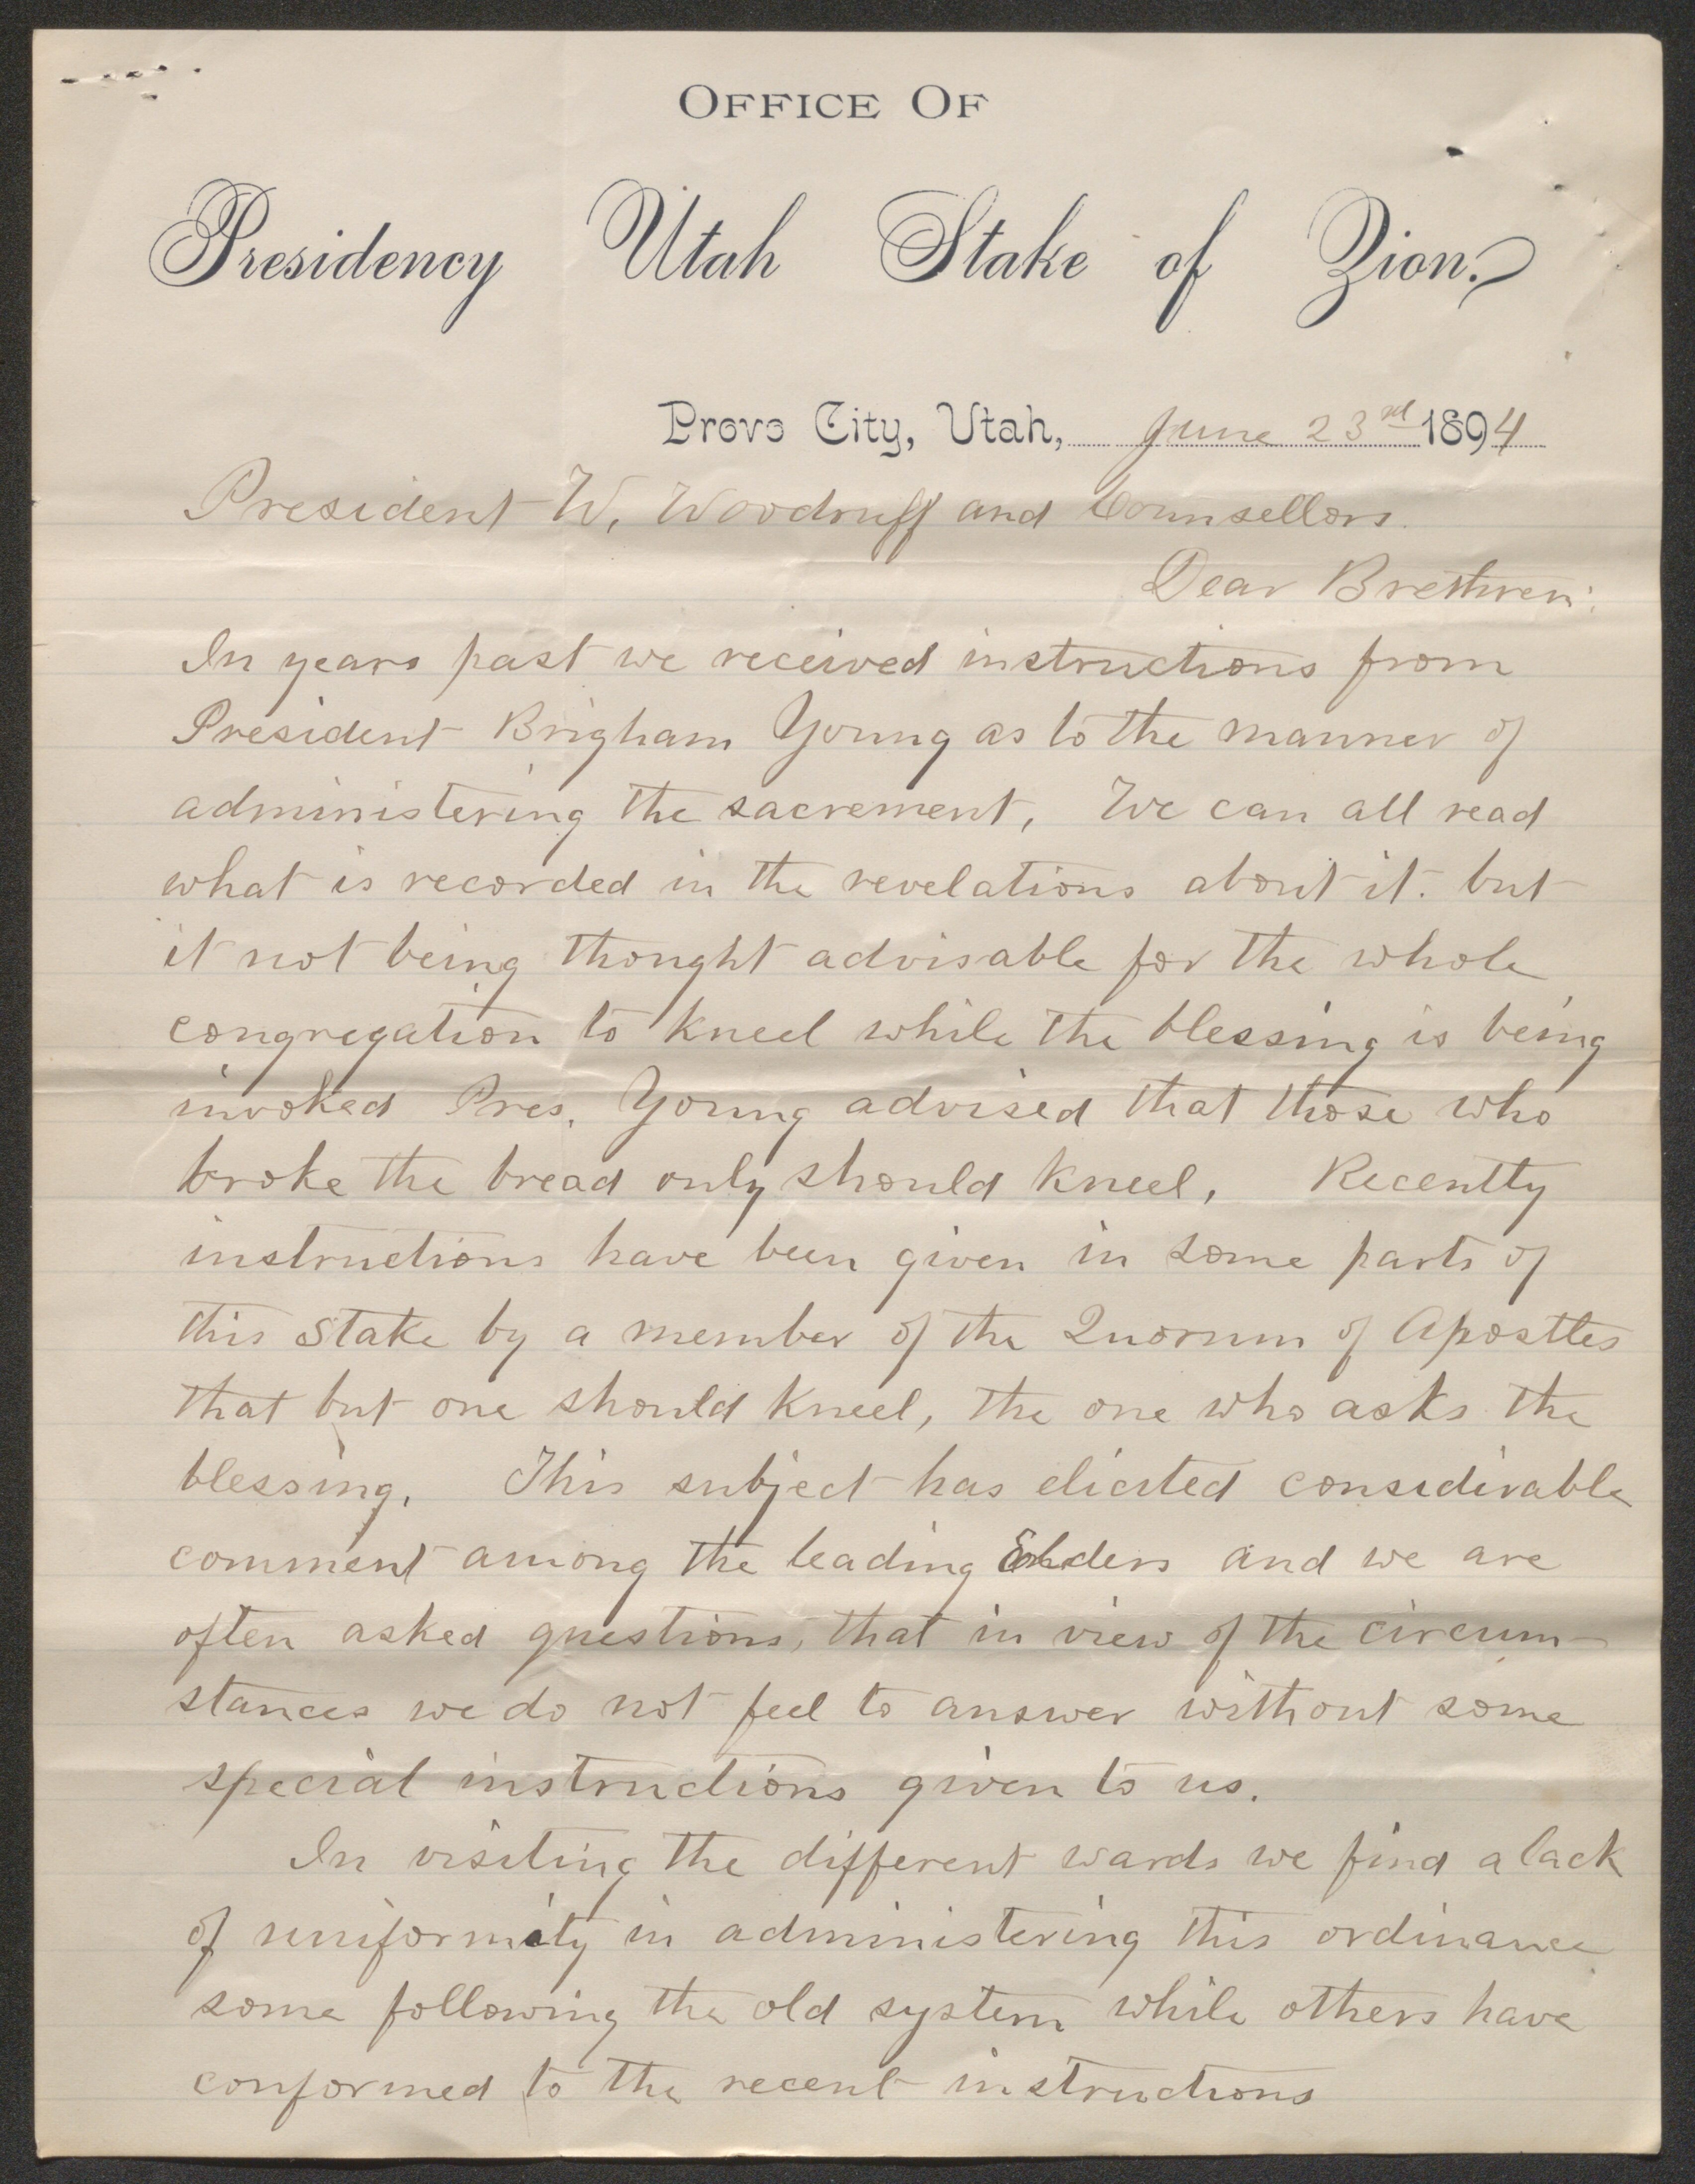 OFFICE OF
Presidency Utah Stake of Zion.
Provo City, Utah, June 23rd 1894
President W. Woodruff and Counsellors.
Dear Brethren:
In years past we received instructions from
President Brigham Young as to the manner of
administering the sacrement, We can all read
what is recorded in the revelations about it. but
it not being thought advisable for the whole
congregation to kneel while the blessing is being
invoked Pres. Young advised that those who
broke the bread only should kneel, Recently
instructions have been given in some parts of
this Stake by a member of the Quorum of Apostles
that but one should kneel, the one who asks the
blessing. This subject has elicited considirable
comment among the leading Elders and we are
often asked questions, that in view of the circum-
stances we do not feel to answer without some
special instructions given to us.
In visiting the different wards we find a lack
of uniformity in administering this ordinance
some following the old system while others have
conformed to the recent instructions